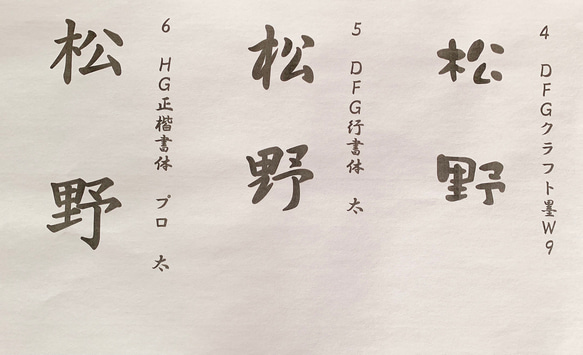 4 DFGクラフト墨W9
松野
5 DFG行書体 太
松野
6 HG正楷書体 プロ 太
松野